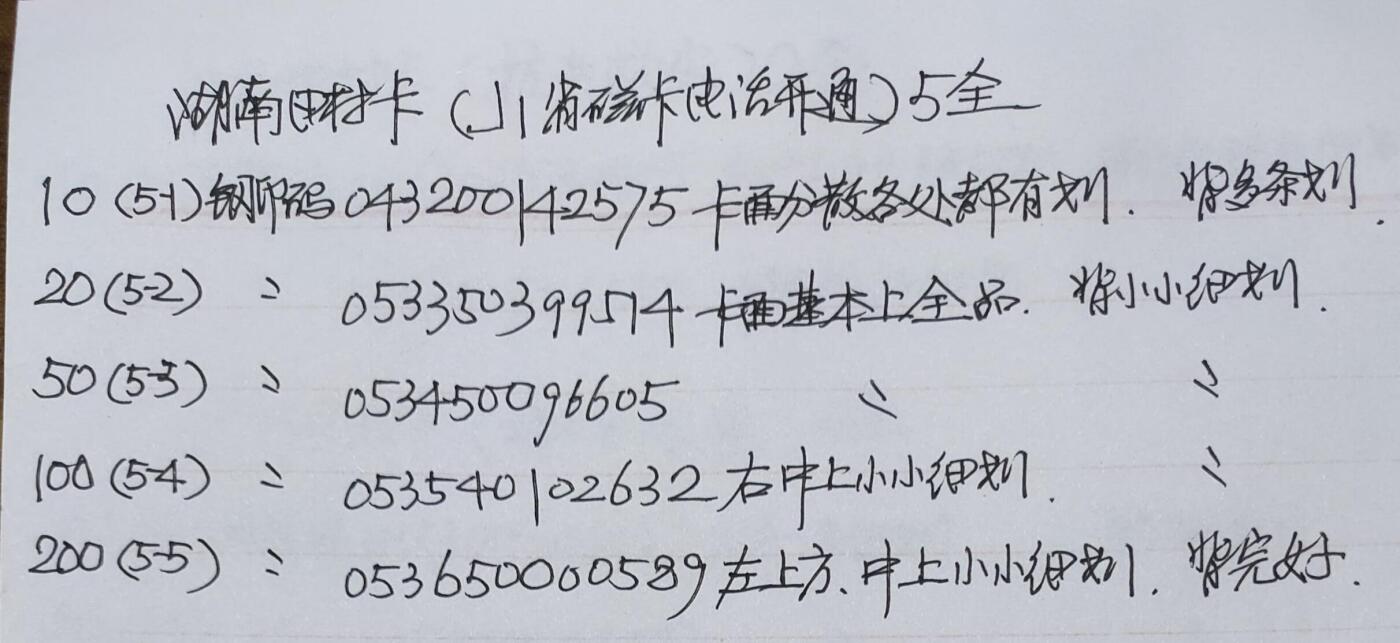 湖南田村卡(川省磁卡电话开通)5全
10(5-1)钢印码043200142575卡面分散各处都有划.背多条划.
20(5-2)〃053350399514卡面基本上全品.背小小细划.
50(5-3)〃053450096605〃〃
100(5-4)〃053540102632右中上小小细划.〃
200(5-5)〃053650000589左上方、中上小小细划.背完好.